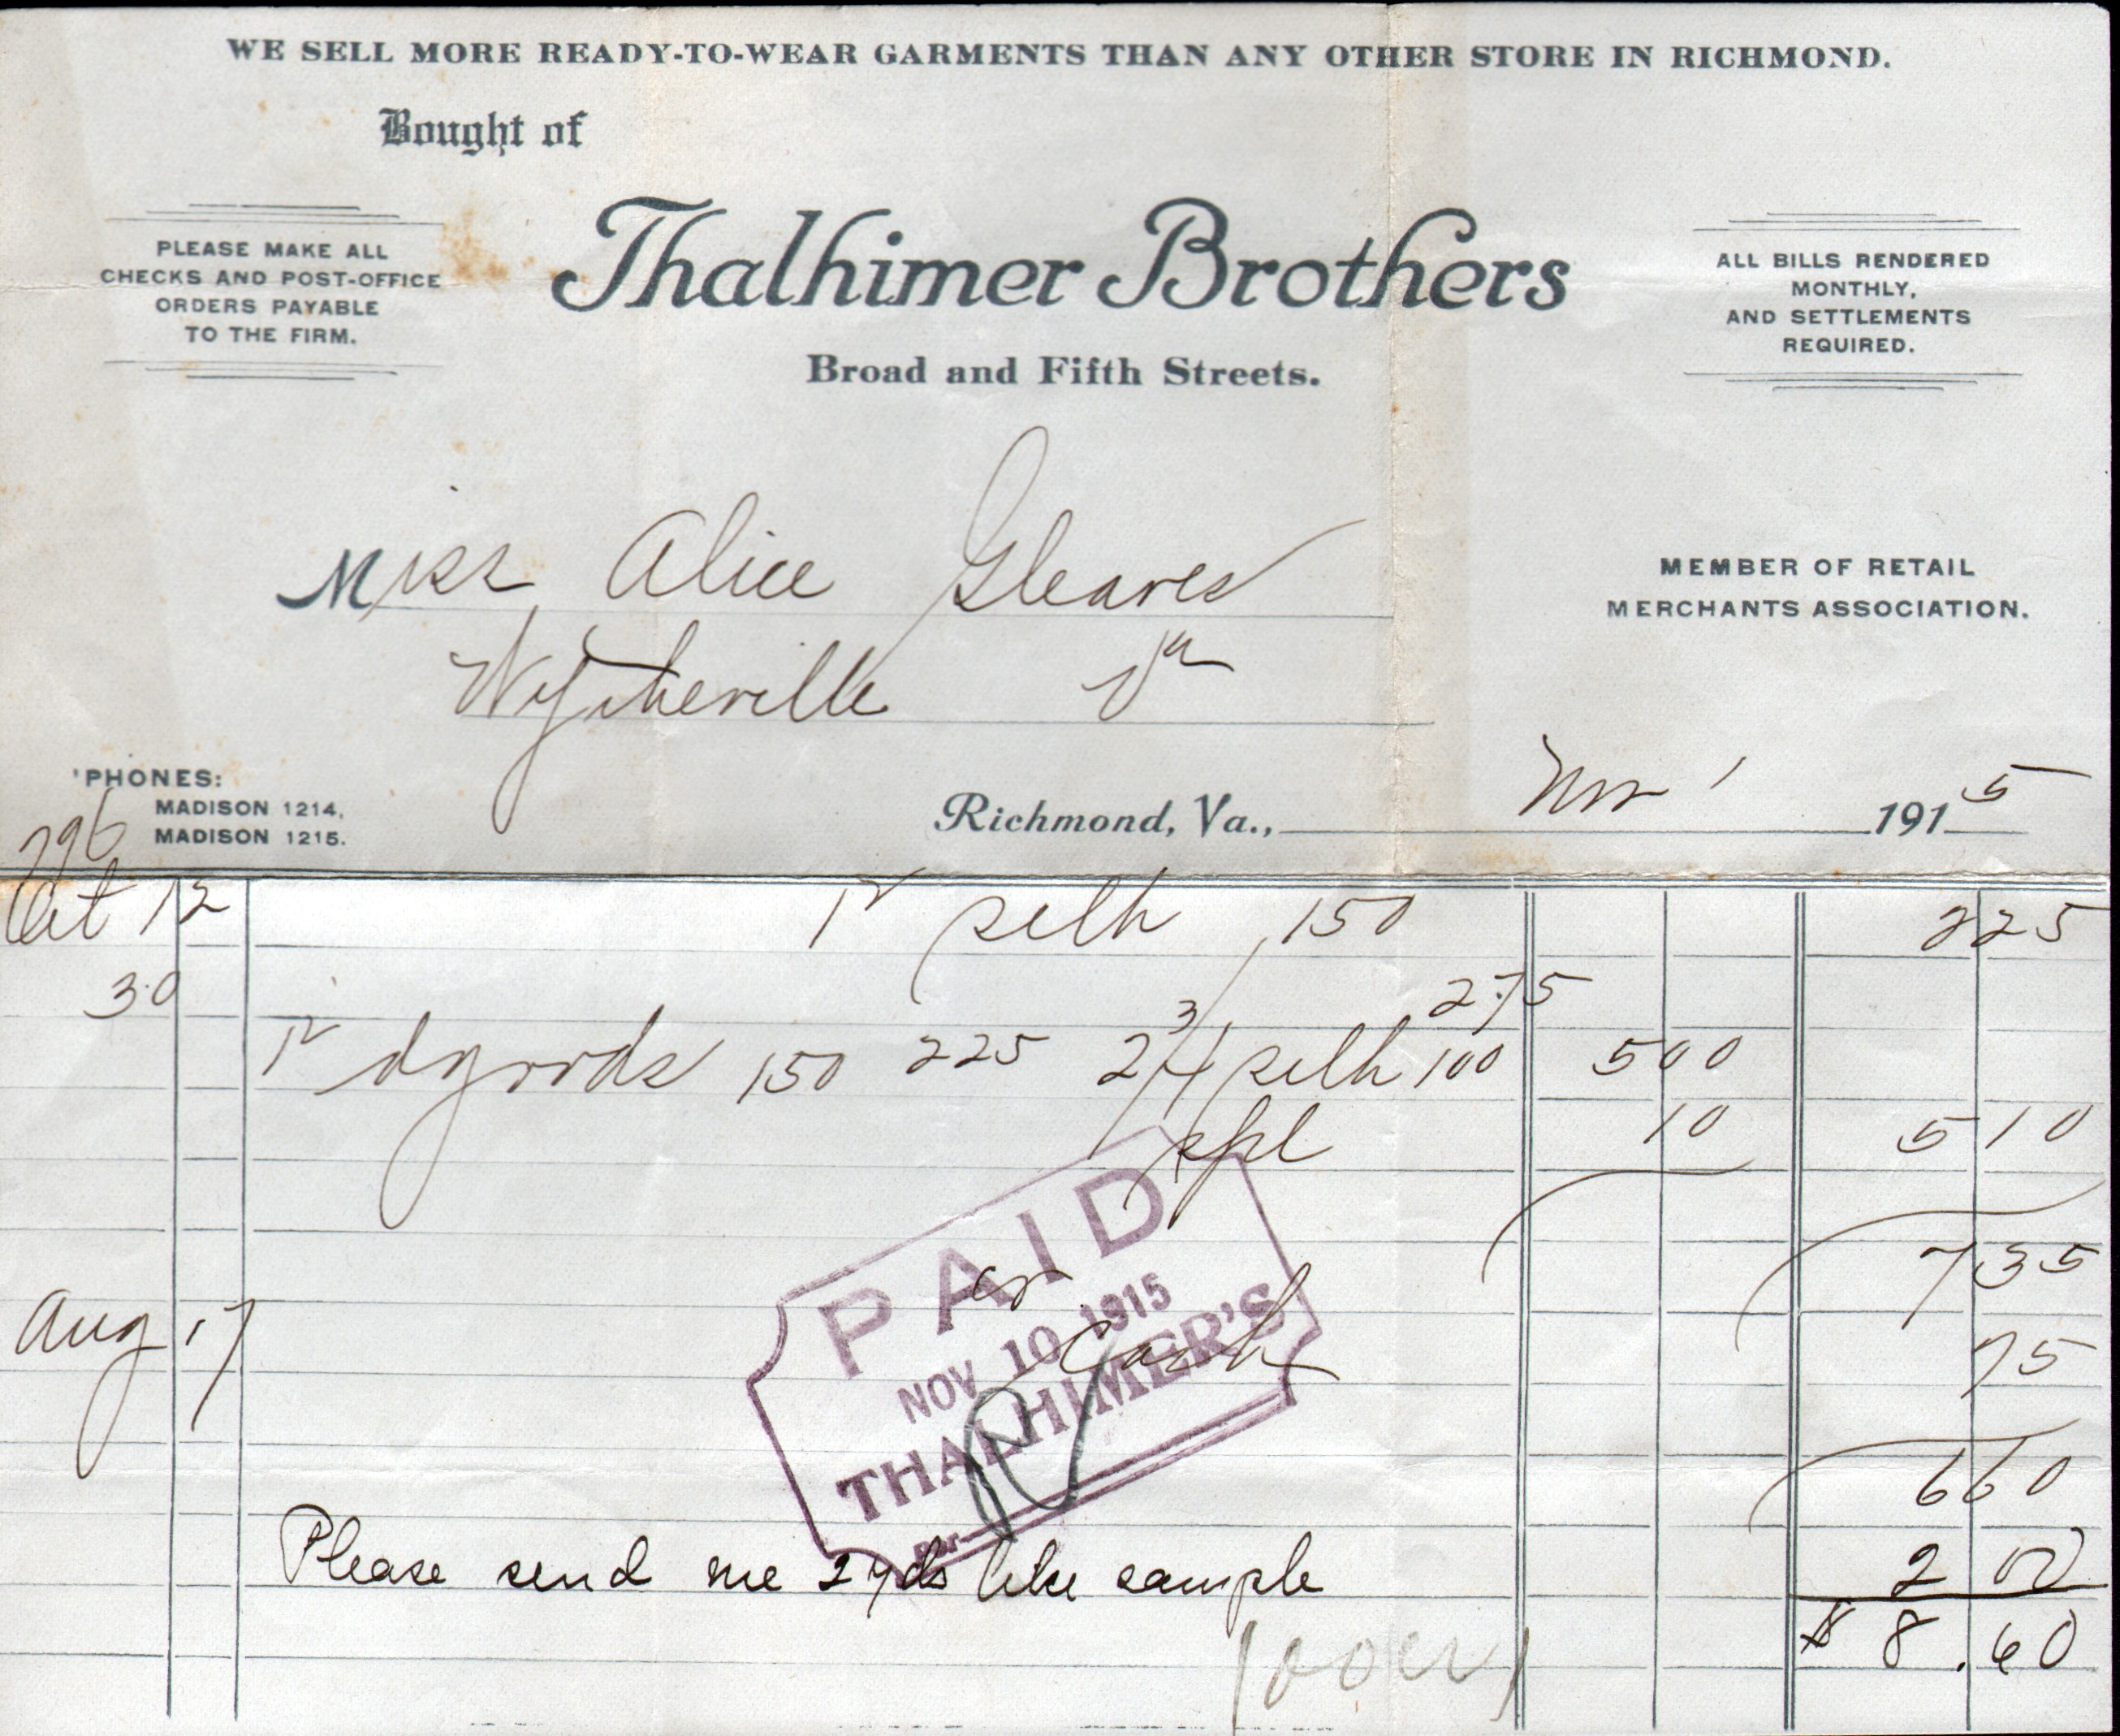 WE SELL MORE READY-TO-WEAR GARMENTS THAN ANY OTHER STORE IN RICHMOND.
Bought of
Thalhimer Brothers
Broad and Fifth Streets.
PLEASE MAKE ALL
CHECKS AND POST-OFFICE
ORDERS PAYABLE
TO THE FIRM.
ALL BILLS RENDERED
MONTHLY,
AND SETTLEMENTS
REQUIRED.
Miss Alice Gleaves
Wytheville Va
MEMBER OF RETAIL
MERCHANTS ASSOCIATION.
'PHONES:
MADISON 1214,
MADISON 1215.
296
Richmond, Va., Nov 1 1915
Oct 12 silk 150 225
30 275
dgoods 150 225 2 3/4 silk 100 500
spl 10 510
735
Aug 17 cr Cash 75
660
PAID
NOV 10 1915
THALHIMER'S
Per
Please send me 2 yds like sample 2 00
$ 8.60
(over)